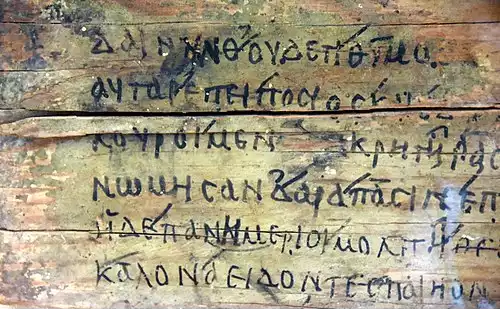 ΔΑΙΝΥΝΘ ΟΥΔΕ
ΑΥΤΑΡ ΕΠΕΙ ΠΟϹΙΟϹ
ΚΟΥΡΟΙ ΜΕΝ ΚΡΗΤΗΡΑϹ
ΝΩΜΗϹΑΝ Δ ΑΡΑ ΠΑϹΙΝ ΕΠ
ΟΙ ΔΕ ΠΑΝΗΜΕΡΙΟΙ ΜΟΛΠΗ
ΚΑΛΟΝ ΑΕΙΔΟΝΤΕϹ ΠΑΙΗΟΝ